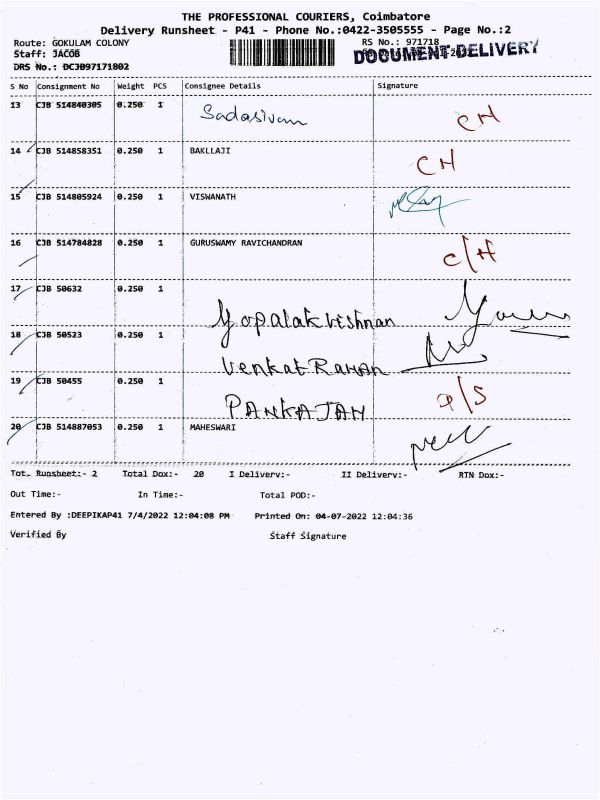 THE PROFESSIONAL COURIERS, Coimbatore
Delivery Runsheet - P41 - Phone No.:0422-3505555 - Page No.:2
Route: GOKULAM COLONY RS No.: 971718
Staff: JACOB DOCUMENT-DELIVERY
DRS No.: DCJB97171802
S No Consignment No Weight PCS Consignee Details Signature
13 CJB 514840305 0.250 1 Sadasivam CH
14 CJB 514858351 0.250 1 BAKLLAJI CH
15 CJB 514805924 0.250 1 VISWANATH
16 CJB 514784828 0.250 1 GURUSWAMY RAVICHANDRAN C/H
17 CJB 50632 0.250 1 Gopalakrishnan
18 CJB 50523 0.250 1 Venkat Raman
19 CJB 50455 0.250 1 PANKAJAM P/S
20 CJB 514887053 0.250 1 MAHESWARI
Tot. Runsheet:- 2 Total Dox:- 20 I Delivery:- II Delivery:- RTN Dox:-
Out Time:- In Time:- Total POD:-
Entered By :DEEPIKAP41 7/4/2022 12:04:08 PM Printed On: 04-07-2022 12:04:36
Verified By Staff Signature